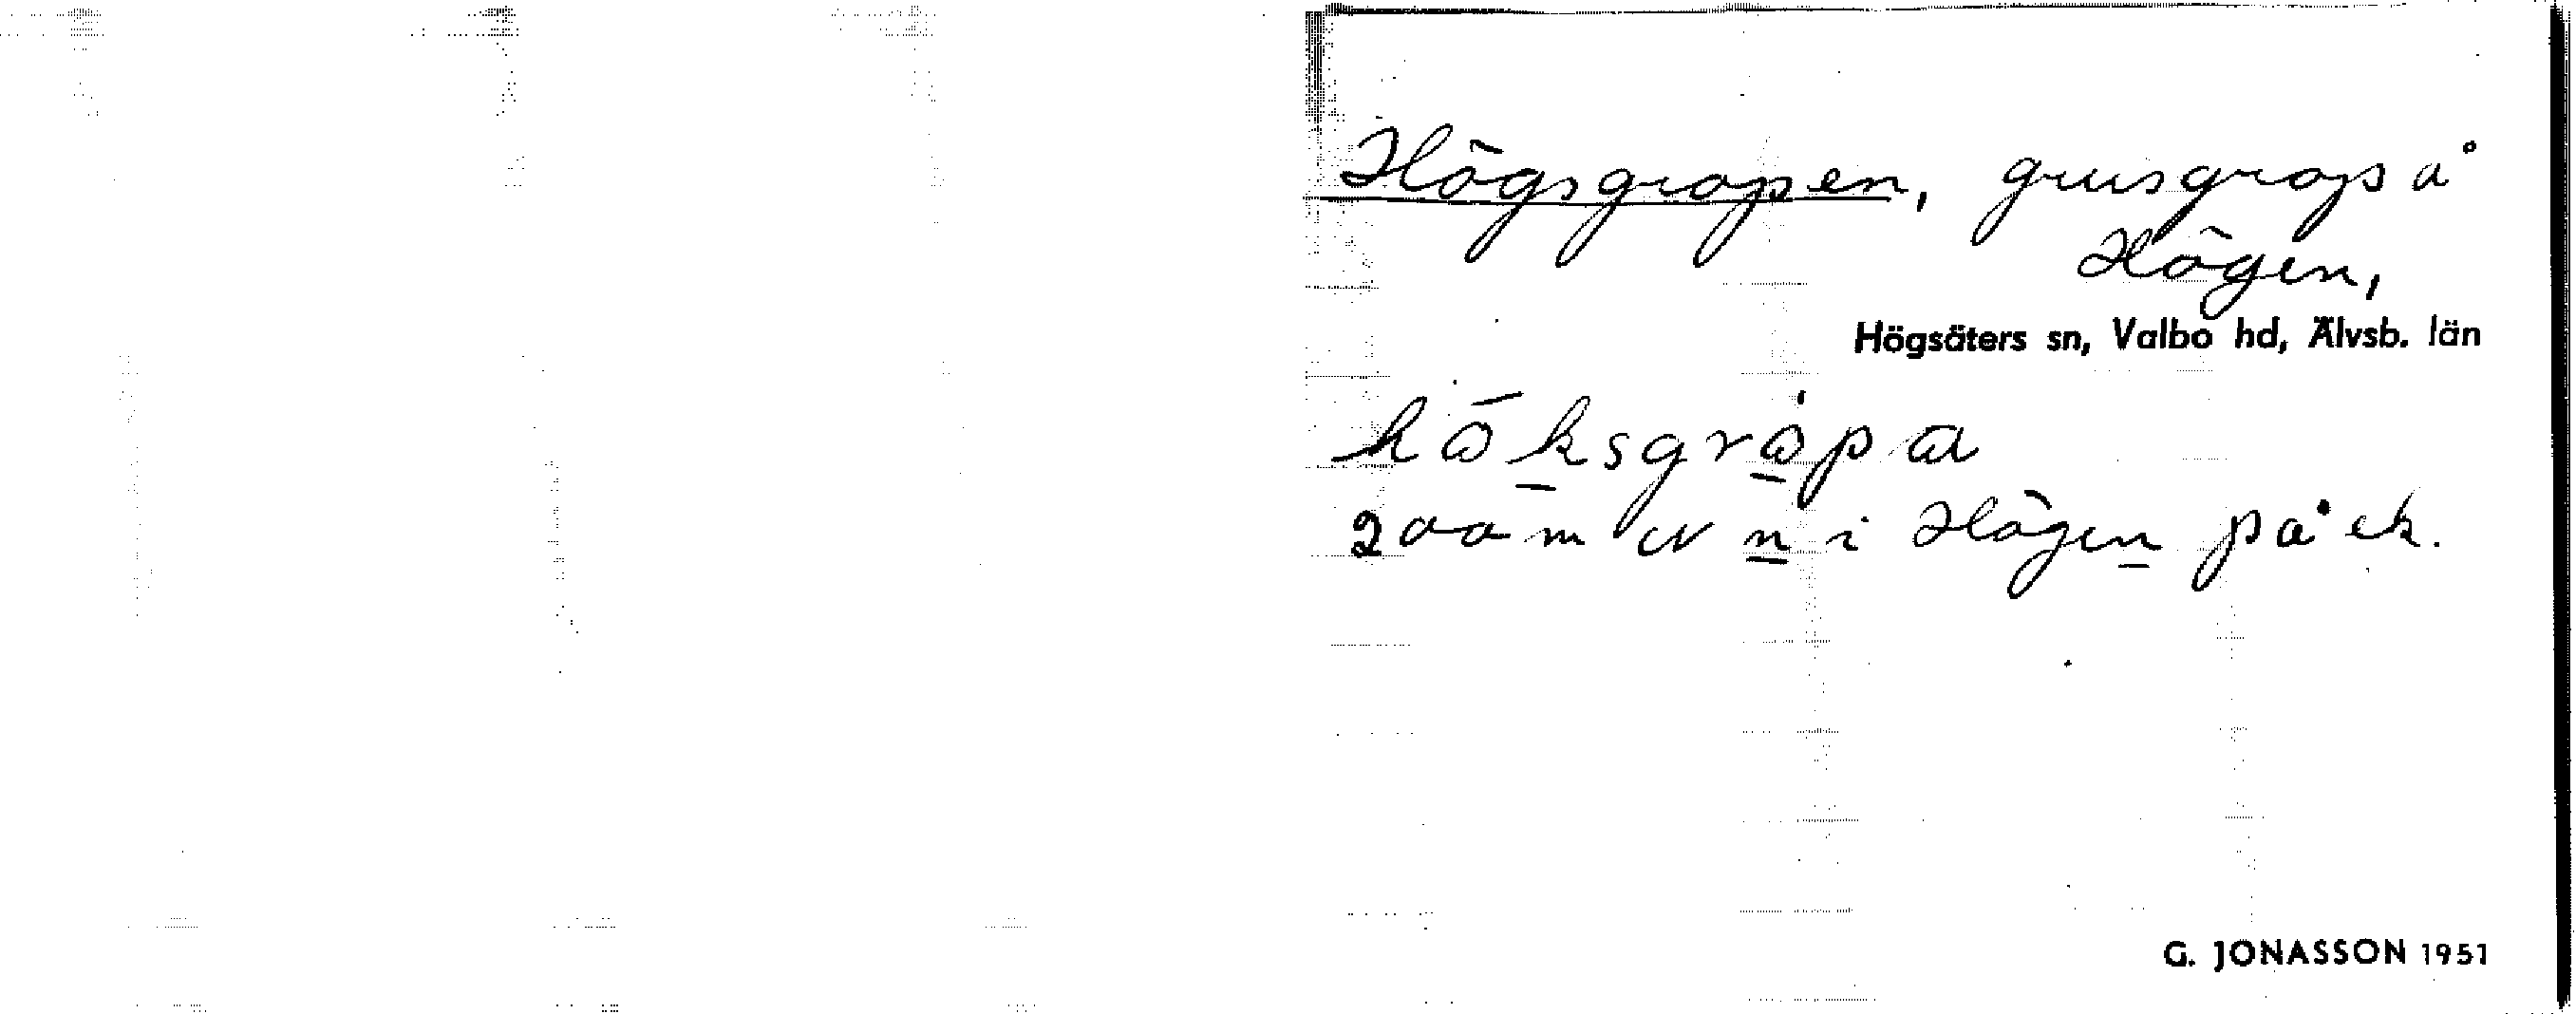 Högsgropen, grusgrop å
Högen,
Högsäters sn, Valbo hd, Älvsb. län
200 m
n i Högen på ek.
G. JONASSON 1951